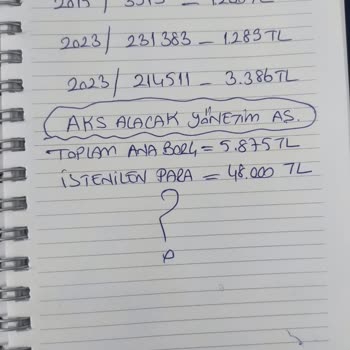 2023/ 231383 — 1283 TL
2023/ 214511 — 3.386 TL
AKS ALACAK YÖNETİM AŞ.
TOPLAM ANA BORÇ = 5.875 TL
İSTENİLEN PARA = 48.000 TL
?